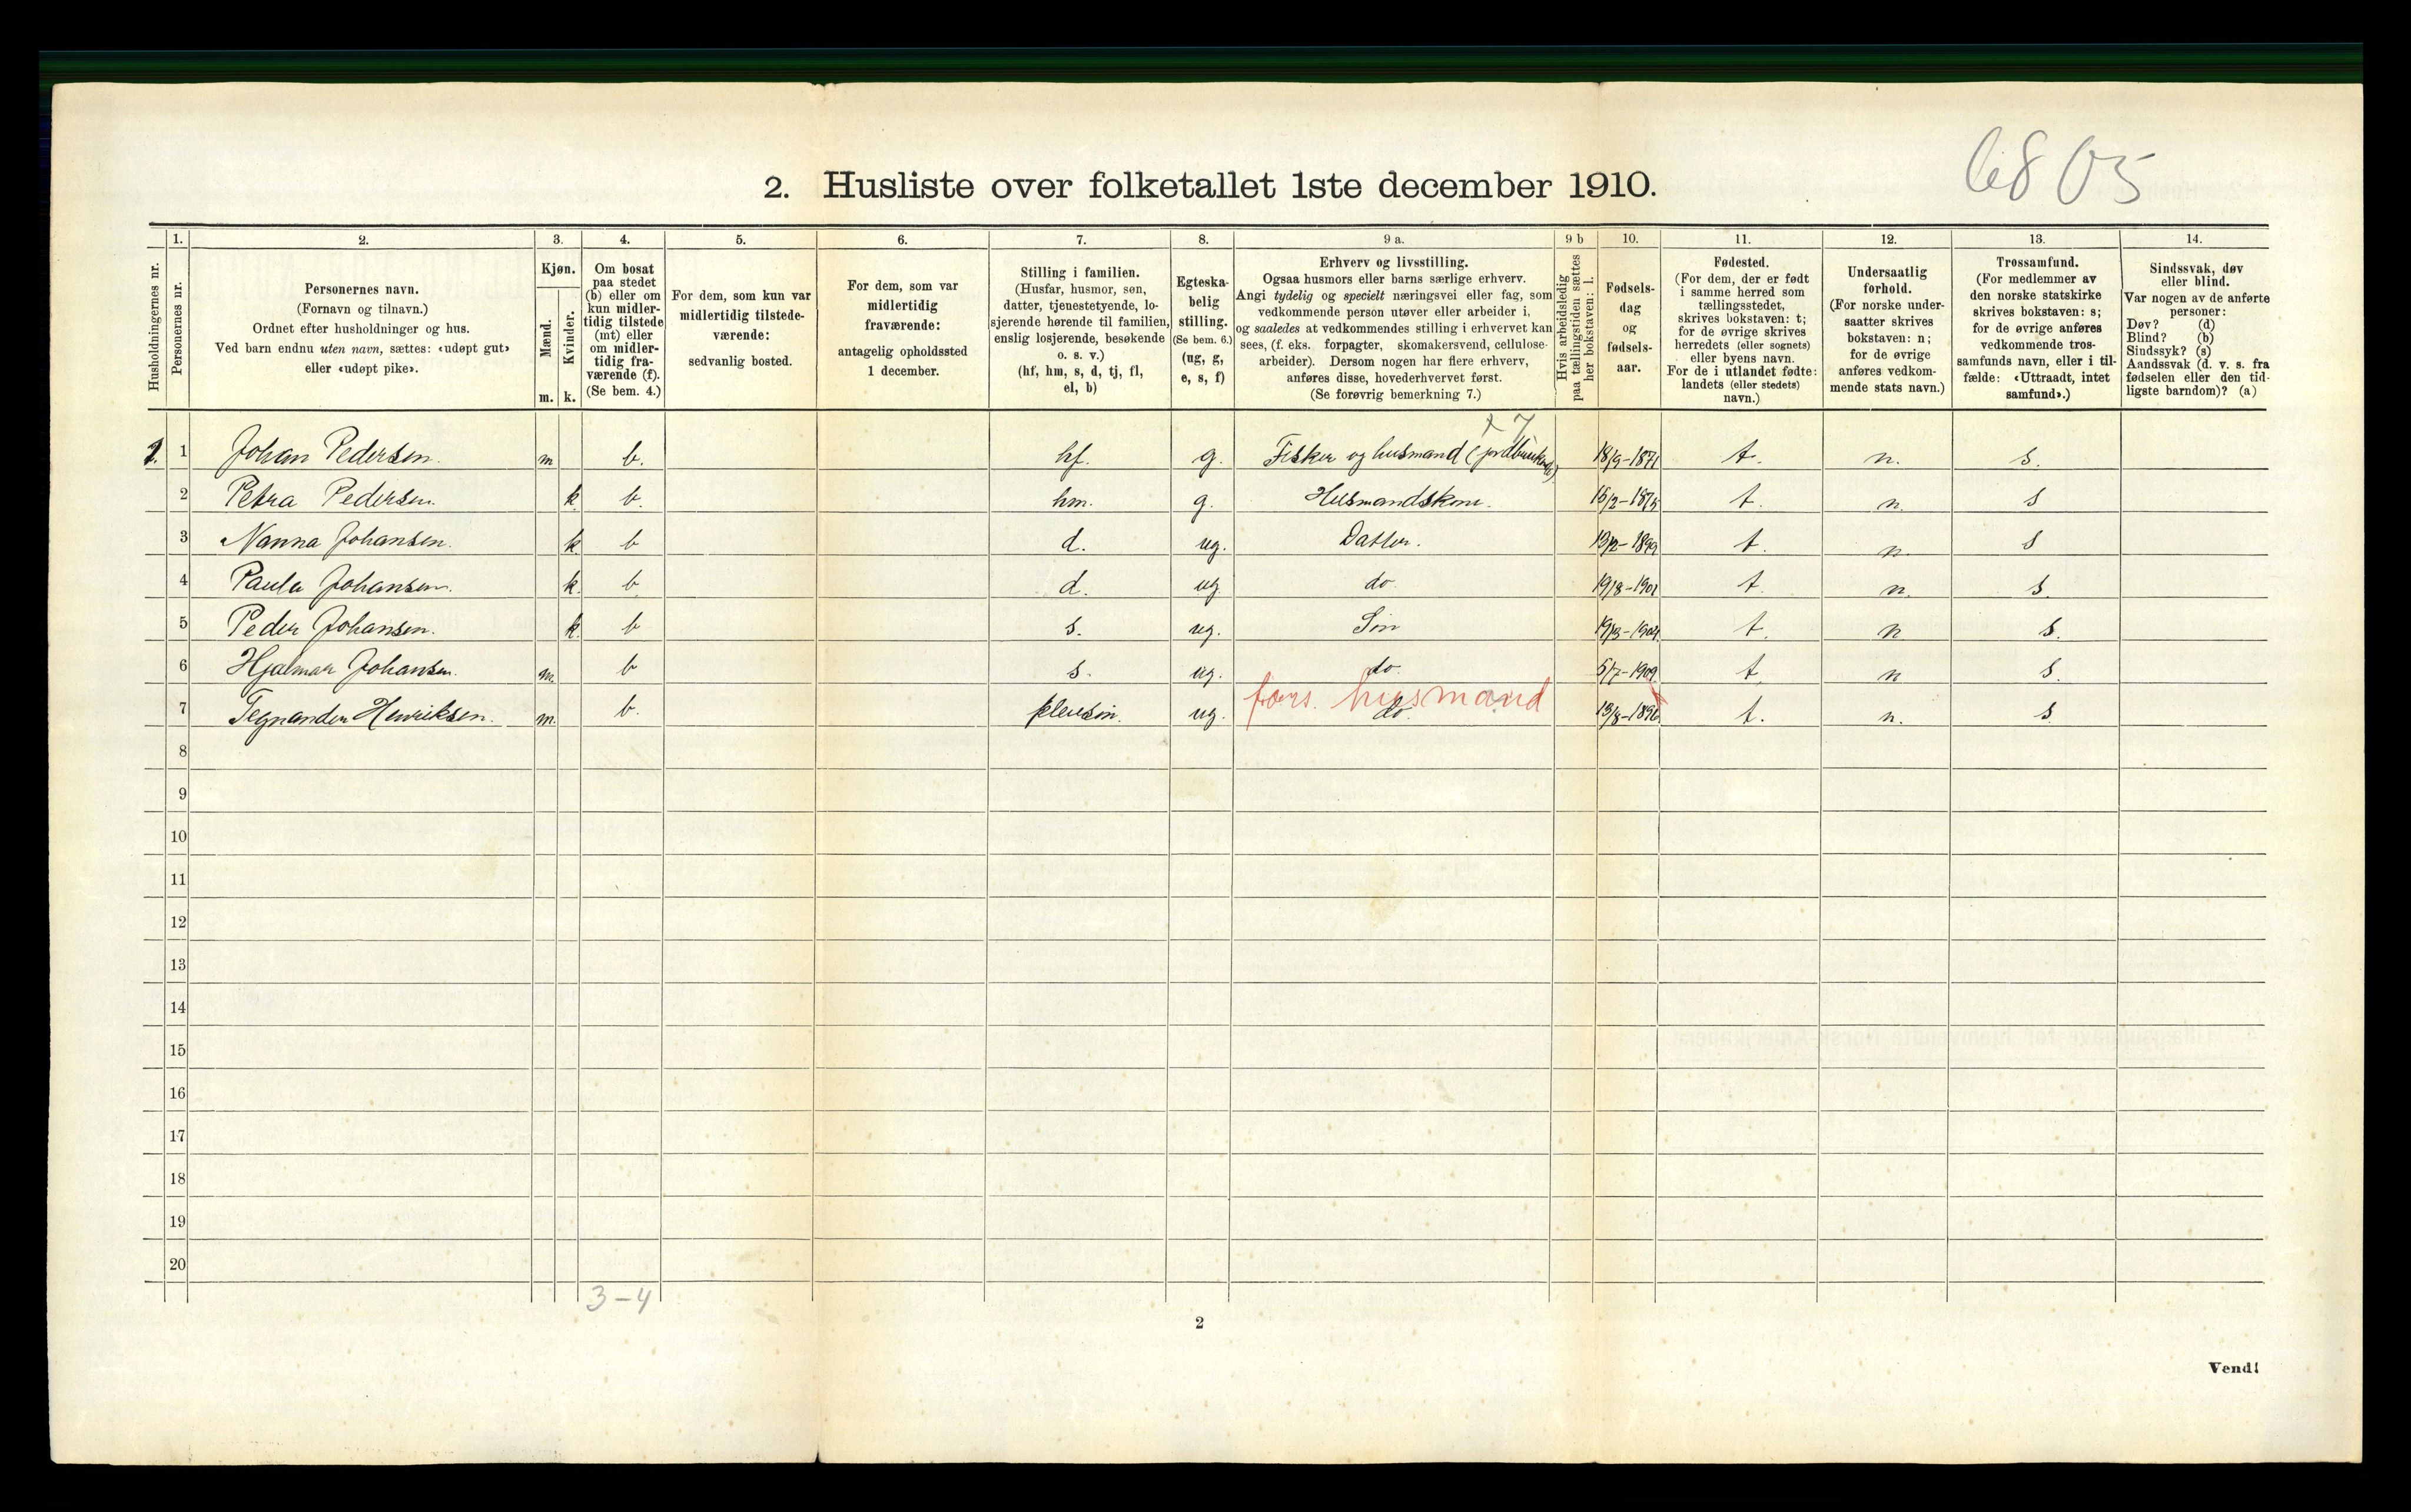 6805
2. Husliste over folketallet 1ste december 1910.
Husholdningernes nr.
1. Personernes nr.
2. Personernes navn.
(Fornavn og tilnavn.)
Ordnet efter husholdninger og hus.
Ved barn endnu uten navn, sættes: «udøpt gut»
eller «udøpt pike».
3. Kjøn.
Mænd. Kvinder.
m. k.
4. Om bosat
paa stedet
(b) eller om
kun midler-
tidig tilstede
(mt) eller
om midler-
tidig fra-
værende (f).
(Se bem. 4.)
5. For dem, som kun var
midlertidig tilstede-
værende:
sedvanlig bosted.
6. For dem, som var
midlertidig
fraværende:
antagelig opholdssted
1 december.
7. Stilling i familien.
(Husfar, husmor, søn,
datter, tjenestetyende, lo-
sjerende hørende til familien,
enslig losjerende, besøkende
o. s. v.)
(hf, hm, s, d, tj, fl,
el, b)
8. Egteska-
belig
stilling.
(Se bem. 6.)
(ug, g,
e, s, f)
9 a. Erhverv og livsstilling.
Ogsaa husmors eller barns særlige erhverv.
Angi tydelig og specielt næringsvei eller fag, som
vedkommende person utøver eller arbeider i,
og saaledes at vedkommendes stilling i erhvervet kan
sees, (f. eks. forpagter, skomakersvend, cellulose-
arbeider). Dersom nogen har flere erhverv,
anføres disse, hovederhvervet først.
(Se forøvrig bemerkning 7.)
9 b Hvis arbeidsledig
paa tællingstiden sættes
her bokstaven: l.
10. Fødsels-
dag
og
fødsels-
aar.
11. Fødested.
(For dem, der er født
i samme herred som
tællingsstedet,
skrives bokstaven: t;
for de øvrige skrives
herredets (eller sognets)
eller byens navn.
For de i utlandet fødte:
landets (eller stedets)
navn.)
12. Undersaatlig
forhold.
(For norske under-
saatter skrives
bokstaven: n;
for de øvrige
anføres vedkom-
mende stats navn.)
13. Trossamfund.
(For medlemmer av
den norske statskirke
skrives bokstaven: s;
for de øvrige anføres
vedkommende tros-
samfunds navn, eller i til-
fælde: «Uttraadt, intet
samfund».)
14. Sindssvak, døv
eller blind.
Var nogen av de anførte
personer:
Døv? (d)
Blind? (b)
Sindssyk? (s)
Aandssvak (d. v. s. fra
fødselen eller den tid-
ligste barndom)? (a)
+ 7
1. 1 Johan Pedersen. m b. hf. g. Fisker og husmand (jordbrukende) 18/9-1871 t. n. s.
2 Petra Pedersen. k b. hm. g. Husmandskone. 15/2-1875 t. n. s
3 Nanna Johansen. k. b d. ug. Datter. 13/2-1899 t. n s
4 Paula Johansen. k. b d. ug. do 19/8-1901 t. n. s.
5 Peder Johansen. k. b s. ug. Søn t. n s.
6 Hjalmar Johansen. m. b s. ug. do 5/7-1909. t. n s.
fors. husmand
7 Tegnander Henriksen. m. b. pleiesøn. ug. do. 13/8-1896 t. n. s
8
9
10
11
12
13
14
15
16
17
18
19
20
3-4
2
Vend!